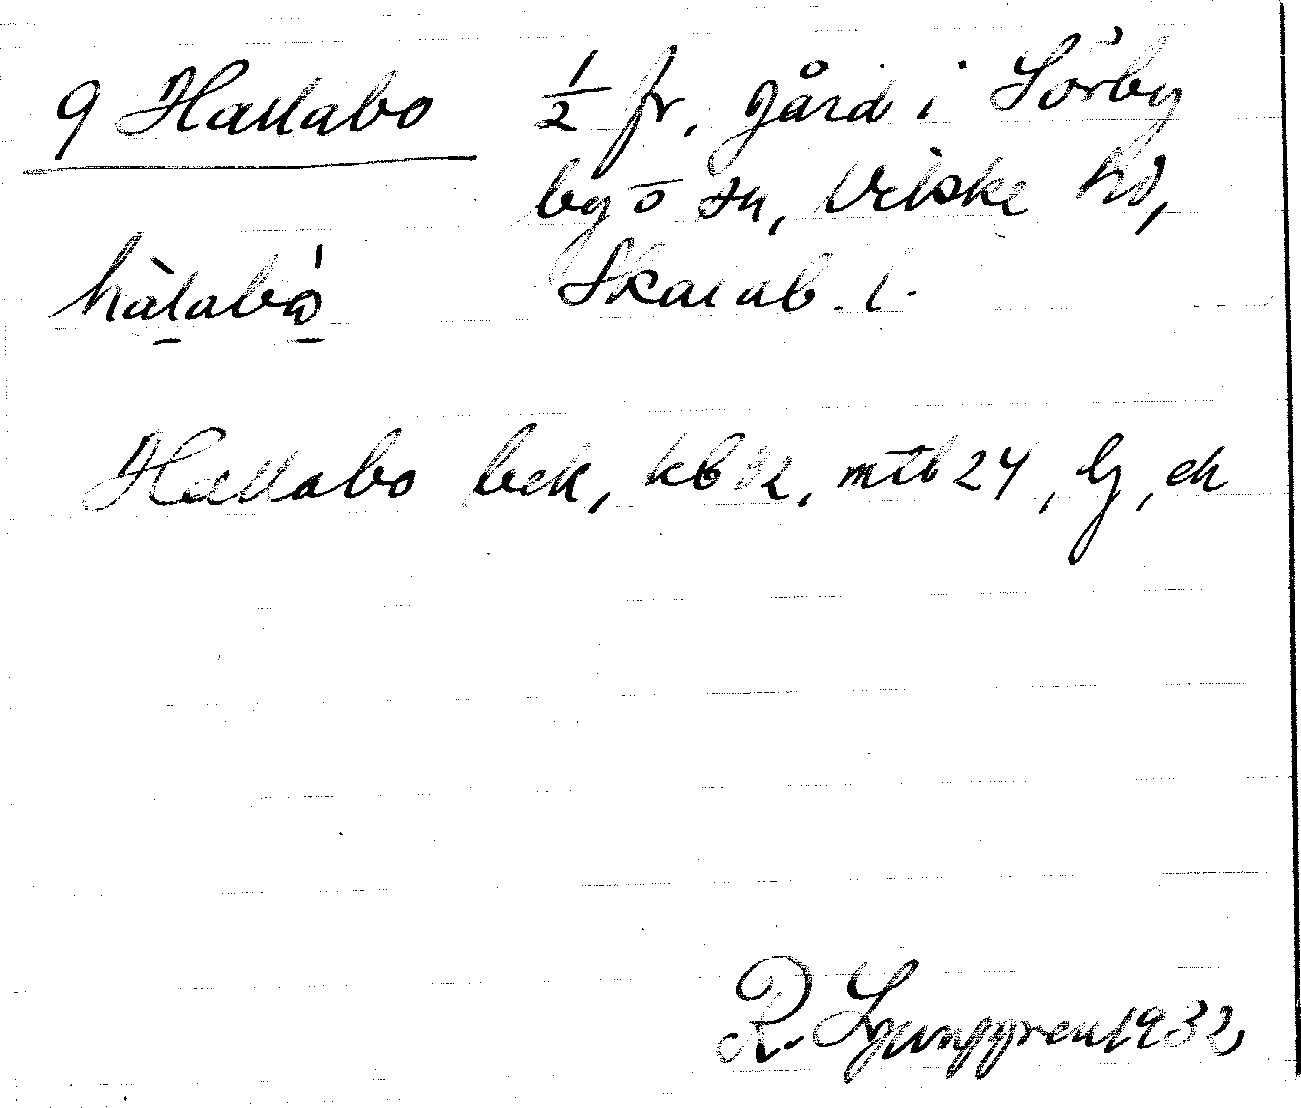 9 Hallabo 1/2 fr. gård i Sörby
by o sn, Vilske hd,
hàlabǻ Skarab. l.
Hallabo bek, kb 32, mtb 24, lj, ek
R. Ljunggren 1932